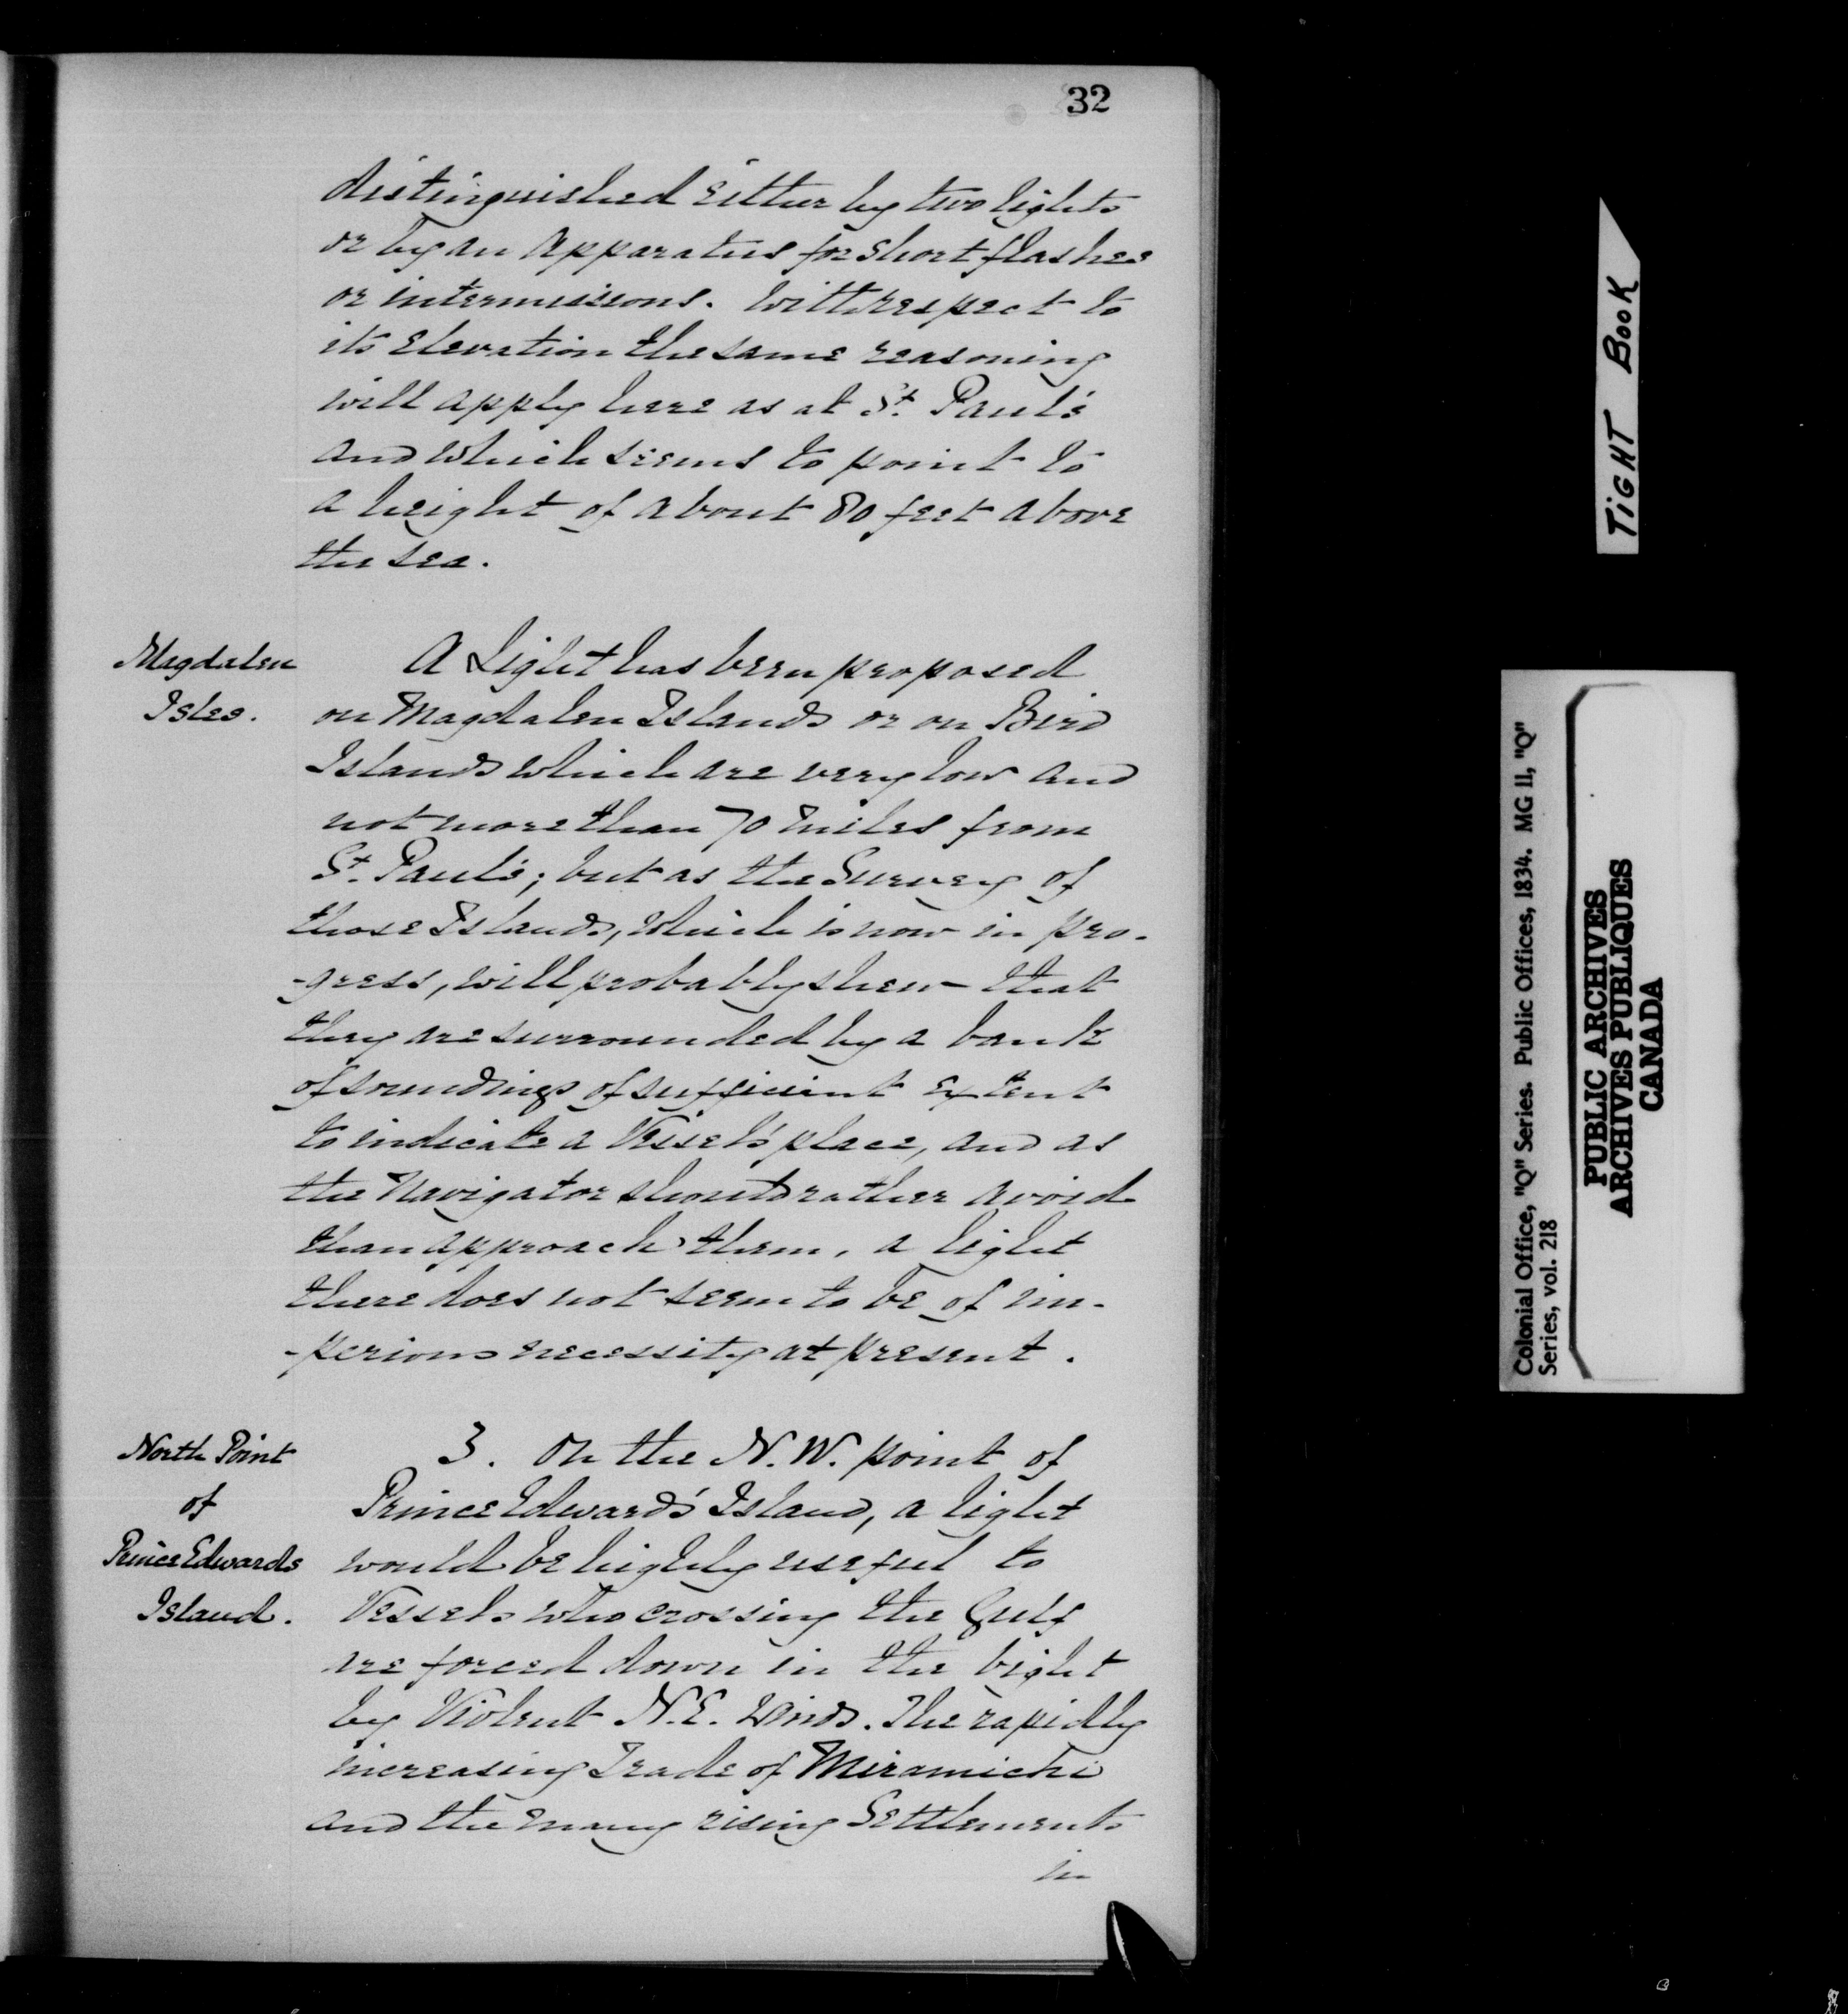 32
distinguished either by two lights
or by an apparatus for short flashes
or intermissions. With respect to
its elevation the same reasoning
will apply here as at St. Paul's
and which seems to point to
a height of about 80 feet above
the sea.
Magdalen
Isles.
A Light has been proposed
on Magdalen Islands or on Bird
Islands which are very low and
not more than 70 miles from
St. Paul's; but as the Survey of
those Islands, which is now in pro-
-gress, will probably shew that
they are surrounded by a bank
of soundings of sufficient extent
to indicate a Vessel's place, and as
the Navigator should rather avoid
than approach them, a light
there does not seem to be of im-
-perious necessity at present.
North Point
of
Prince Edwards
Island.
3. On the N.W. point of
Prince Edward's Island, a light
would be highly useful to
Vessels who crossing the Gulf
are forced down in the bight
by Violent N.E. Winds. The rapidly
increasing Trade of Miramichi
and the many rising Settlements
in
TIGHT BOOK
Colonial Office, "Q" Series. Public Offices, 1834. MG 11, "Q"
Series, vol. 218
PUBLIC ARCHIVES
ARCHIVES PUBLIQUES
CANADA